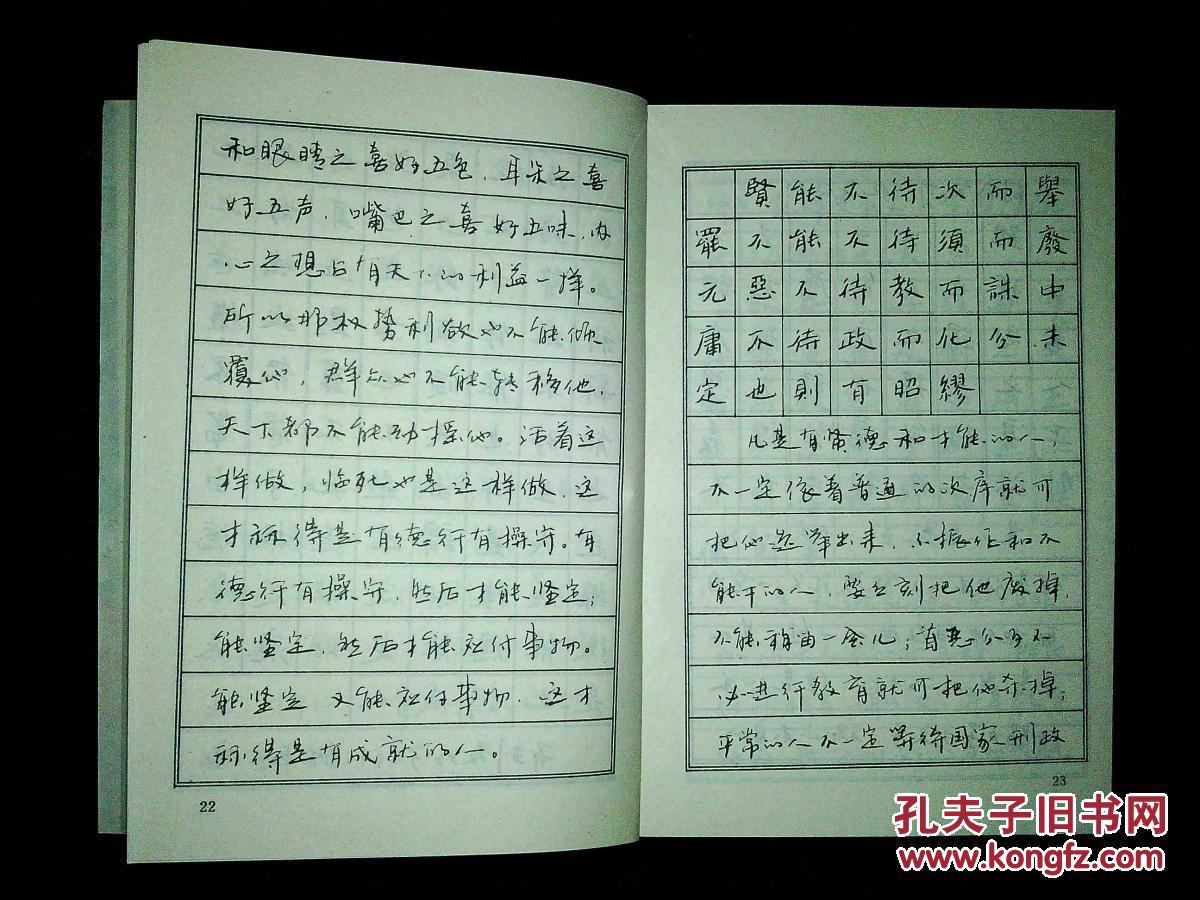 和眼睛之喜好五色，耳朵之喜
好五声，嘴巴之喜好五味，内
心之想占有天下的利益一样。
所以那权势利欲也不能倾
覆他，群众也不能转移他，
天下都不能动摇他。活着这
样做，临死也是这样做，这
才称得是有德行有操守。有
德行有操守，然后才能坚定；
能坚定，然后才能应付事物。
能坚定又能应付事物，这才
称得是有成就的人。
22
賢能不待次而舉
罷不能不待須而廢
元惡不待教而誅中
庸不待政而化分未
定也則有昭繆
凡是有贤德和才能的人，
不一定依着普通的次序就可
把他选举出来，不振作和不
能干的人，要立刻把他废掉，
不能稍留一会儿；首恶分子不
必进行教育就可把他杀掉；
平常的人不一定等待国家刑政
23
孔夫子旧书网
www.kongfz.com